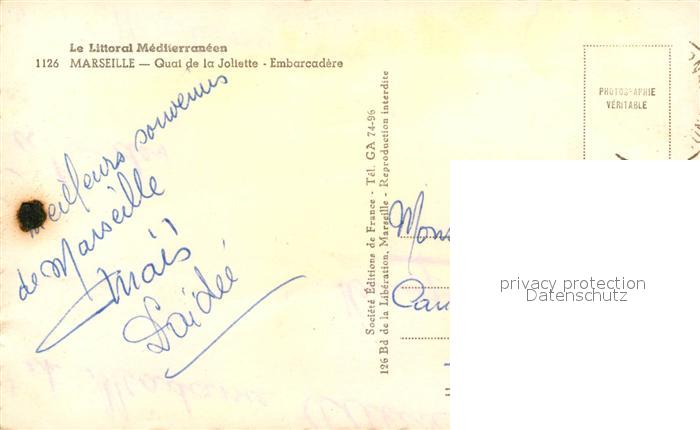 Le Littoral Méditerranéen
1126 MARSEILLE — Quai de la Joliette - Embarcadère
meilleurs souvenirs
de Marseille
Société Éditions de France - Tél. GA 74-96
126 Bd de la Libération, Marseille - Reproduction interdite
PHOTOGRAPHIE
VÉRITABLE
Mons
privacy protection
Datenschutz